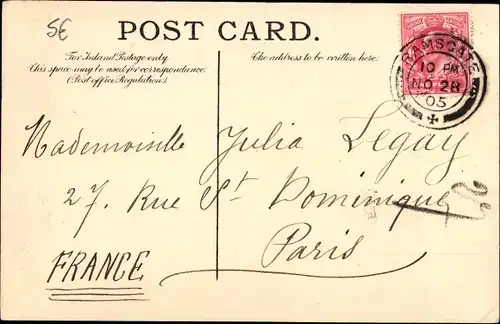 5E
POST CARD.
For Inland Postage only
this space may be used for correspondence.
(Post office Regulation).
The address to be written here.
RAMSGATE
10 PM
NO 28
05
Mademoiselle Julia Legay
27, Rue St Dominique
Paris
FRANCE